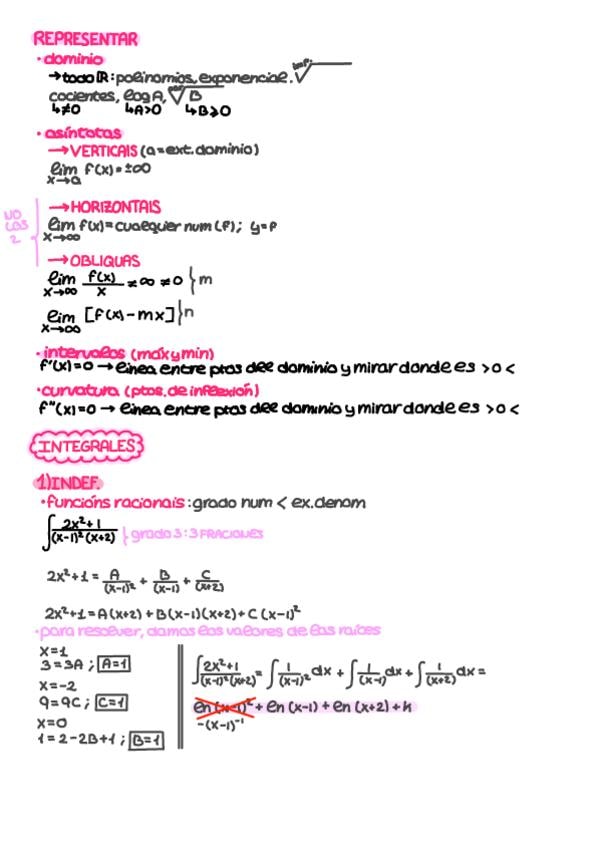 REPRESENTAR
· dominio
→ todo ℝ: polinomios, exponencial. ⁱᵐᵖ√
cocientes, log A, ᵖᵃʳ√B
↳≠0 ↳A>0 ↳B≥0
· asíntotas
→ VERTICAIS (a = ext. dominio)
lim f(x) = ±∞
x→a
→ HORIZONTAIS
NO
LAS
2
lim f(x) = cualquier num (P); y=P
x→∞
→ OBLIQUAS
lim f(x)/x ≠ ∞ ≠ 0 } m
x→∞
lim [f(x) - mx] } n
x→∞
· intervalos (máx y min)
f'(x)=0 → línea entre ptos del dominio y mirar donde es >0 <
· curvatura (ptos. de inflexión)
f''(x)=0 → línea entre ptos del dominio y mirar donde es >0 <
INTEGRALES
1) INDEF.
· funcións racionais: grado num < ex. denom
∫ 2x²+1/(x-1)²(x+2) } grado 3: 3 FRACIONES
2x²+1 = A/(x-1)² + B/(x-1) + C/(x+2)
2x²+1 = A(x+2) + B(x-1)(x+2) + C(x-1)²
· para resolver, damos los valores de las raíces
x=1
3=3A; A=1
x=-2
9=9C; C=1
x=0
1=2-2B+1; B=1
∫ 2x²+1/(x-1)²(x+2) = ∫ 1/(x-1)² dx + ∫ 1/(x-1) dx + ∫ 1/(x+2) dx =
ln (x-1)² + ln (x-1) + ln (x+2) + K
-(x-1)⁻¹